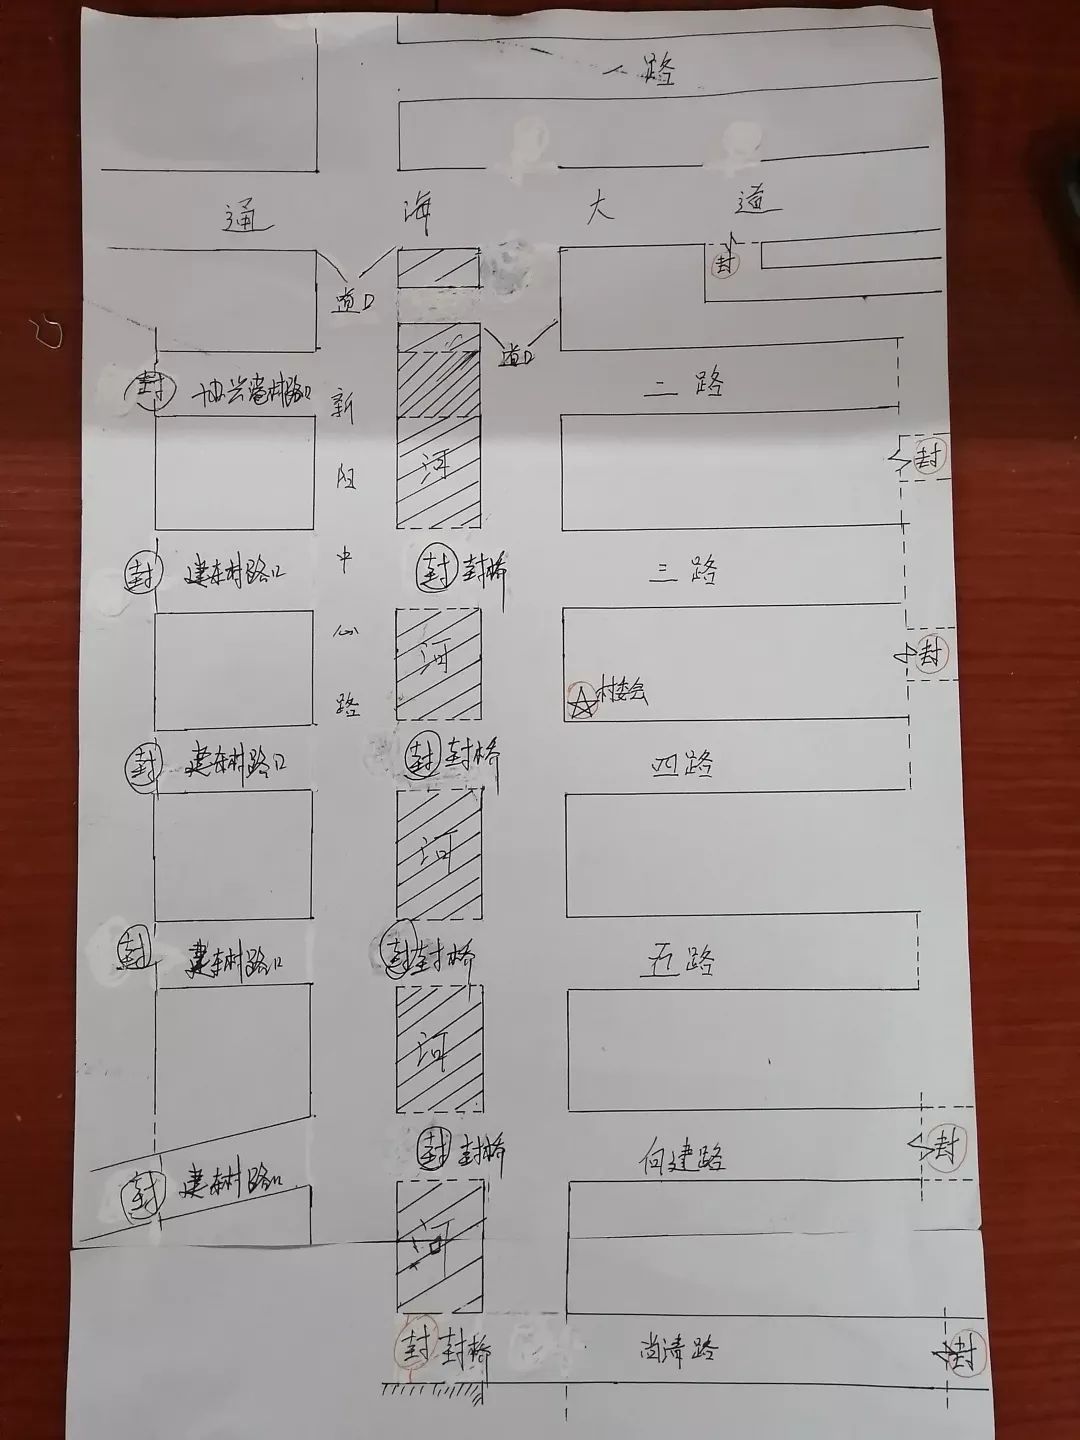 一路
通海大道
封
道口
道口
封 协兴港村路口
二路
新阳中心路
河
封
封 建东村路口
封 封桥
三路
河
封
村委会
封 建东村路口
封 封桥
四路
河
封 建东村路口
封 封桥
五路
河
封 建东村路口
封 封桥
向建路
封
河
封 封桥
尚清路
封